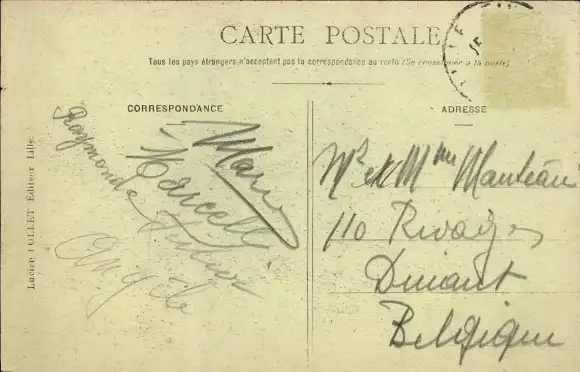 CARTE POSTALE
Tous les pays étrangers n'acceptent pas la correspondance au recto (Se renseigner à la poste)
CORRESPONDANCE
ADRESSE
Raymonde
Marcelle
Angèle
Mr et Mme Manteau
110 Rivages
Dinant
Belgique
Lucien POLLET Éditeur Lille